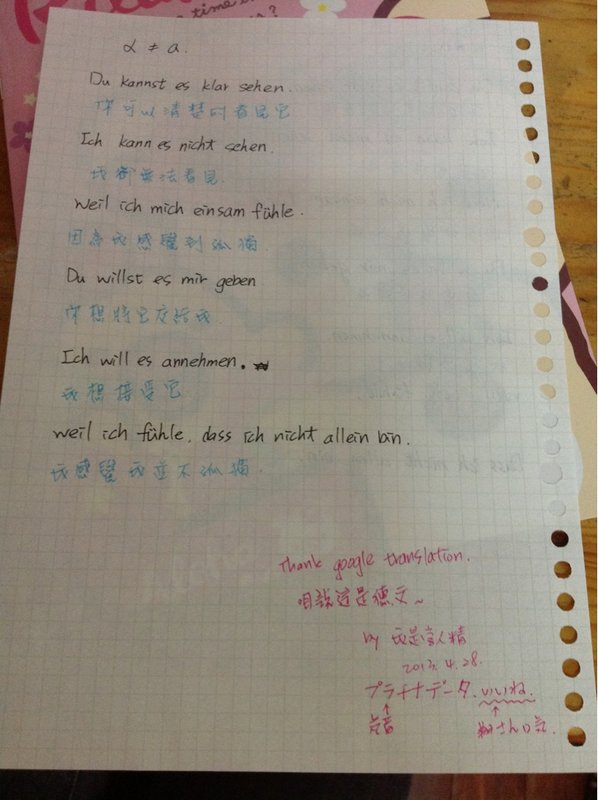 time i
?
α ≠ a.
Du kannst es klar sehen.
你可以清楚的看見它
Ich kann es nicht sehen.
我卻無法看見.
weil ich mich einsam fühle.
因為我感覺到孤獨.
Du willst es mir geben
你想將它交給我.
Ich will es annehmen.
我想接受它
weil ich fühle, dass ich nicht allein bin.
我感覺我並不孤獨.
Thank google translation.
咱說這是德文~
by 我是 人精
2013.4.28.
プラチナデータ.いいね.
↑ ↑
さん口気.